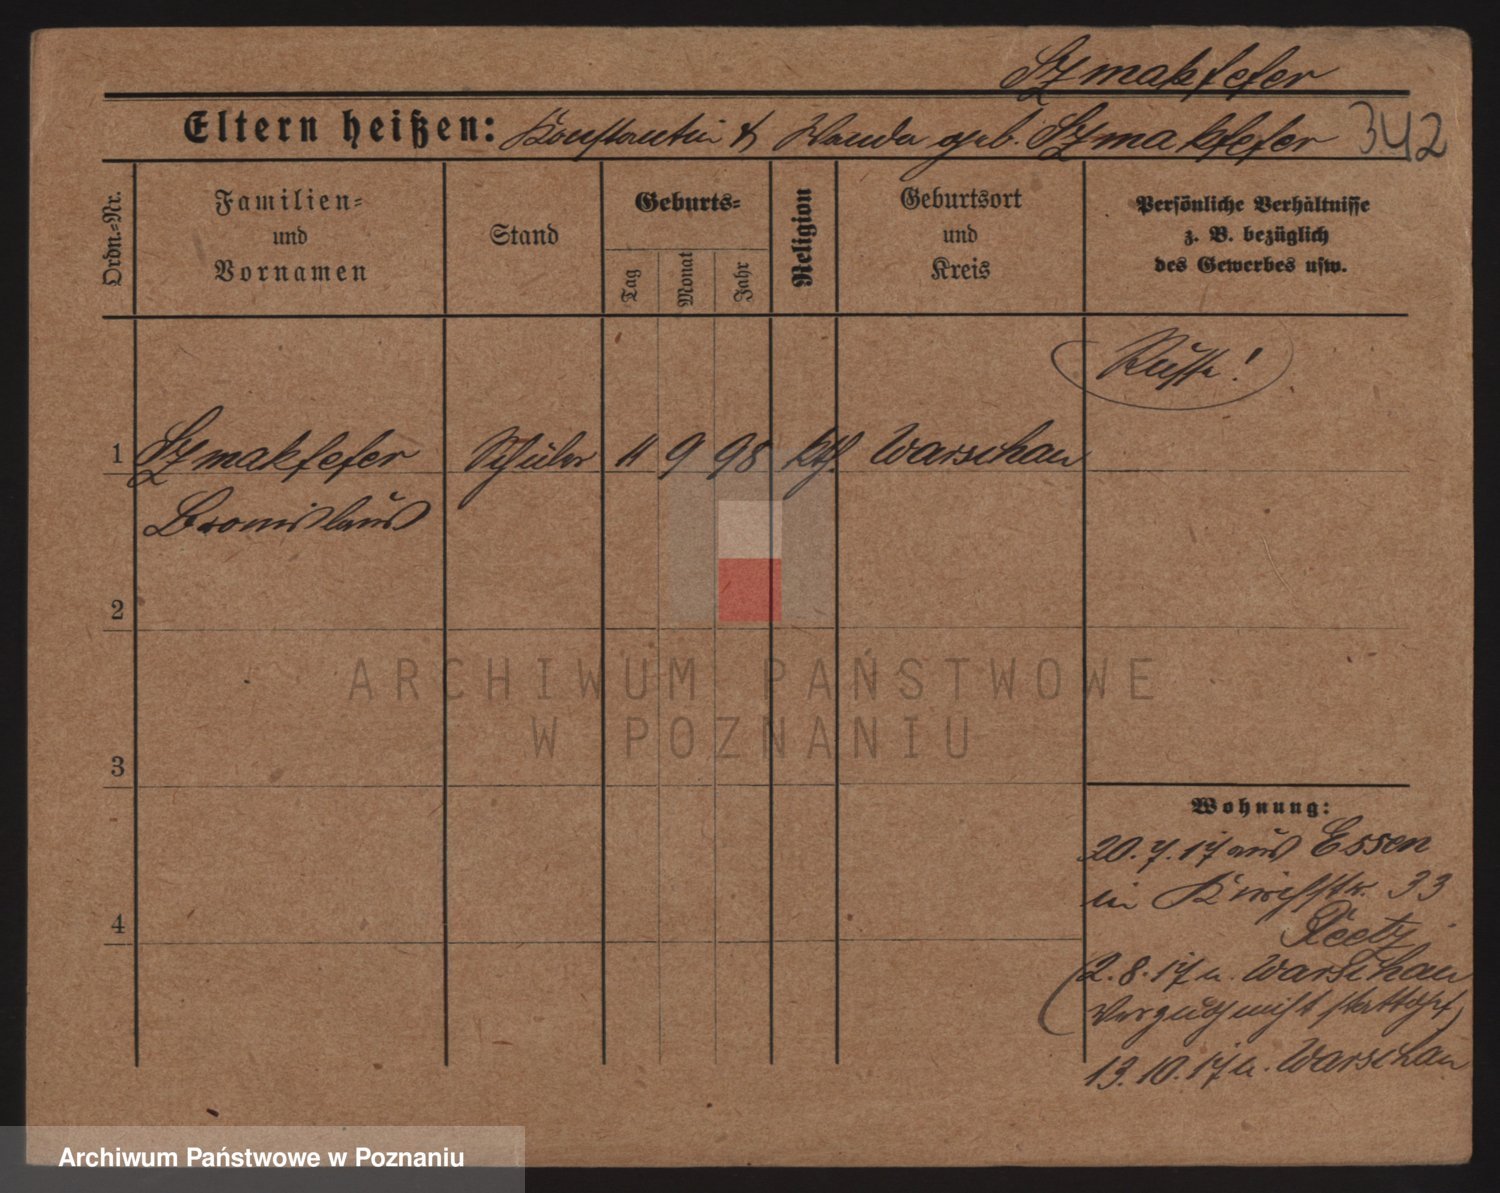 Szmakfefer
Eltern heißen: Konstantin & Wanda geb. Szmakfefer 342
Ordn.-Nr.
Familien-
und
Vornamen
Stand
Geburts-
Tag
Monat
Jahr
Religion
Geburtsort
und
Kreis
Persönliche Verhältnisse
z. B. bezüglich
des Gewerbes usw.
Russe!
1 Szmakfefer Schüler 11 9 98 kth. Warschau
Bronislaus
2
3
4
Wohnung:
20.7.17 aus Essen
in Kirchstr. 33
(2.8.17 n. Warschau
Verzug nicht
13.10.17 n. Warschau
ARCHIWUM PAŃSTWOWE
W POZNANIU
Archiwum Państwowe w Poznaniu